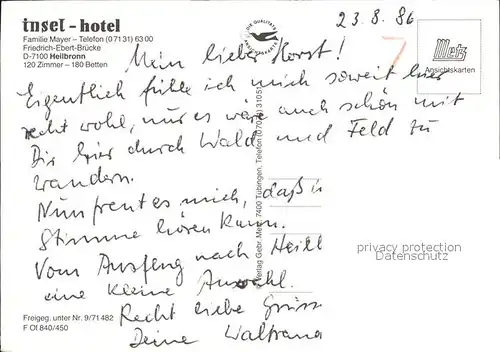 insel - hotel
Familie Mayer – Telefon (0 71 31) 63 00
Friedrich-Ebert-Brücke
D-7100 Heilbronn
120 Zimmer – 180 Betten
23.8.86
Metz
Ansichtskarten
Mein lieber Horst!
Eigentlich fühle ich mich soweit hier
recht wohl, nur es wäre auch schön mit
Dir hier durch Wald und Feld zu
wandern.
Nun freut es mich, daß i
Stimme hören kann.
Vom Ausflug nach Heilb
eine kleine Auswahl.
Recht liebe Grüss
Deine Waltrau
Freigeg. unter Nr. 9/71 482
F Of 840/450
Verlag Gebr. Metz, 7400 Tübingen, Telefon (0 70 71) 3 10 51
privacy protection
Datenschutz